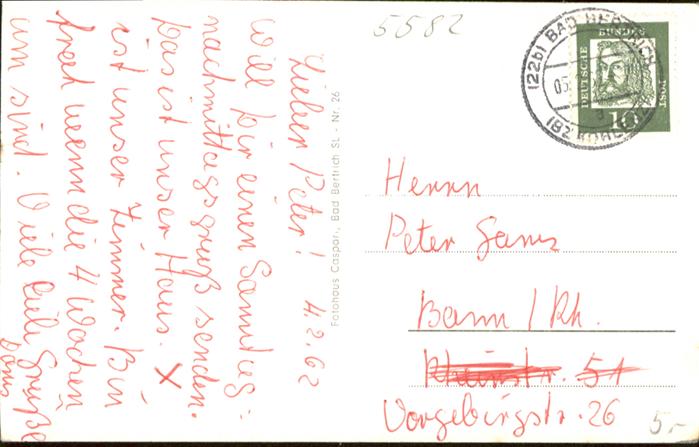 5582
Lieber Peter! 4.2.62
Will Dir einen Sonntag-
nachmittagsgruß senden.
Das ist unser Haus. X
ist unser Zimmer. Bin
froh wenn die 4 Wochen
um sind. Viele liebe Grüße
Fotohaus Caspari, Bad Bertrich St. - Nr. 26
(22b) BAD BERTRICH
05.
a
DEUTSCHE
BUNDES
POST
10
Herrn
Peter
Bonn / Rh.
Rheinstr. 51
Vorgebirgstr. 26
5,-